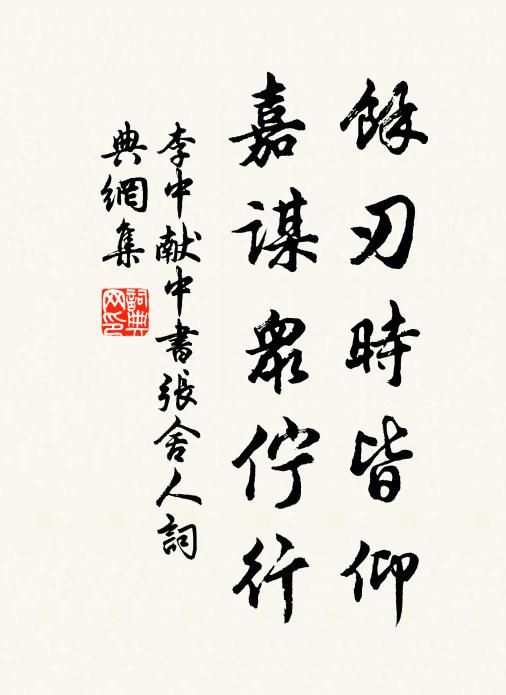 餘刃時皆仰
嘉謀眾佇行
李中献中書張舍人詞
典網集
詞典
网印